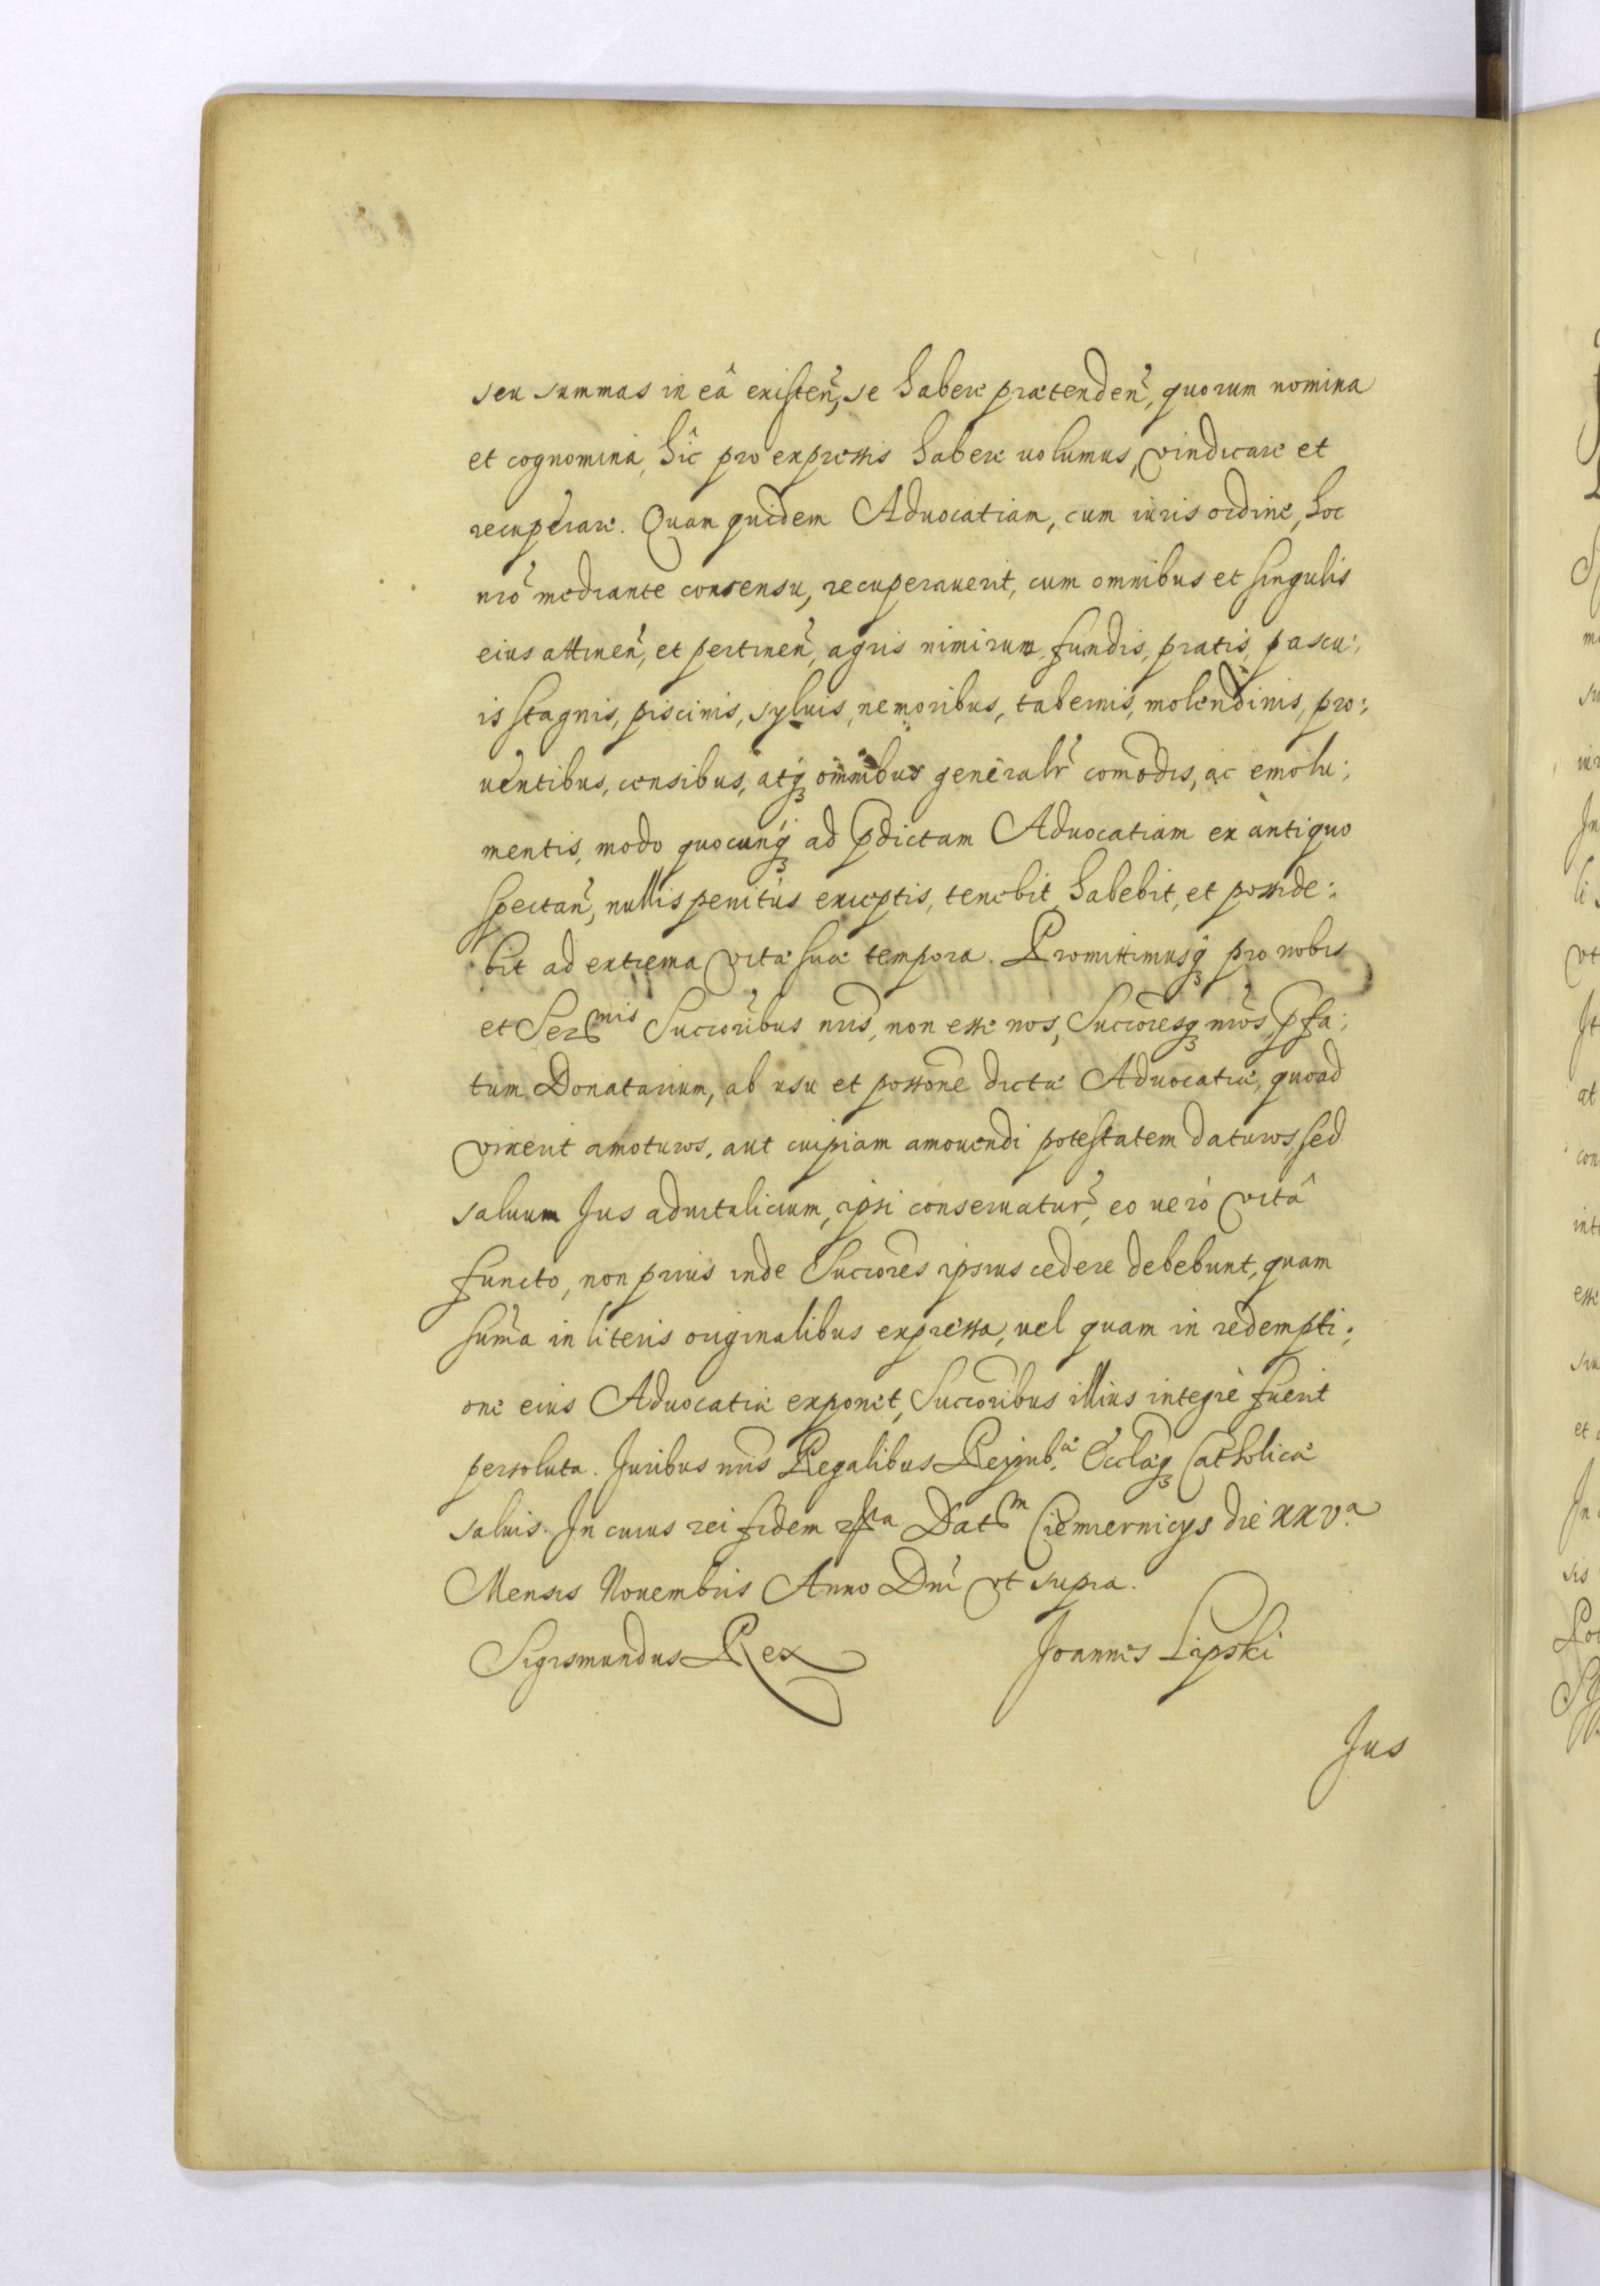 seu summas in eâ existen̄, se habere prætenden̄, quorum nomina
et cognomina, hîc pro expressis habere uolumus, vindicare et
recuperare. Quam quidem Aduocatiam, cum iuris ordine, hoc
nrō mediante consensu, recuperauerit, cum omnibus et singulis
eius attinen̄, et pertinen̄, agris nimirum, fundis, pratis, pascu:
is stagnis, piscinis, syluis, nemoribus, tabernis, molendinis, pro:
uentibus, censibus, atq̨ omnibus generalr̄ com̄odis, ac emolu:
mentis, modo quocunq̨ ad p̄dictam Aduocatiam ex antiquo
spectan̄, nullis penitùs exceptis, tenebit, habebit, et posside:
bit ad extrema vitæ suæ tempora. Promittimusq̨ pro nobis
et Serᵐⁱˢ Succorībus nr̄is, non esse nos, Succorēsq̨ nrōs, p̄fa:
tum Donatarium, ab usu et possonē dictæ Aduocatiæ, quoad
vixerit amoturos, aut cuipiam amouendi potestatem daturos, sed
saluum Jus aduitalicium, ipsi conseruatur̄, eo uerò vitâ
functo, non prius inde Succorēs ipsius cedere debebunt, quam
sum̄a in literis originalibus expressa, uel quam in redempti:
one eius Aduocatiæ exponet, Succorībus illius integrè fuerit
persoluta. Juribus nr̄is Regalibus Reipub.æ Eccl̄æq̨ Catholicæ
saluis. In cuius rei fidem Datᵐ Ciemiernicys die XXVᵃ
Mensis Nouembris Anno Dnī vt supra.
Sigismundus Rex
Joannes Lipski
Jus